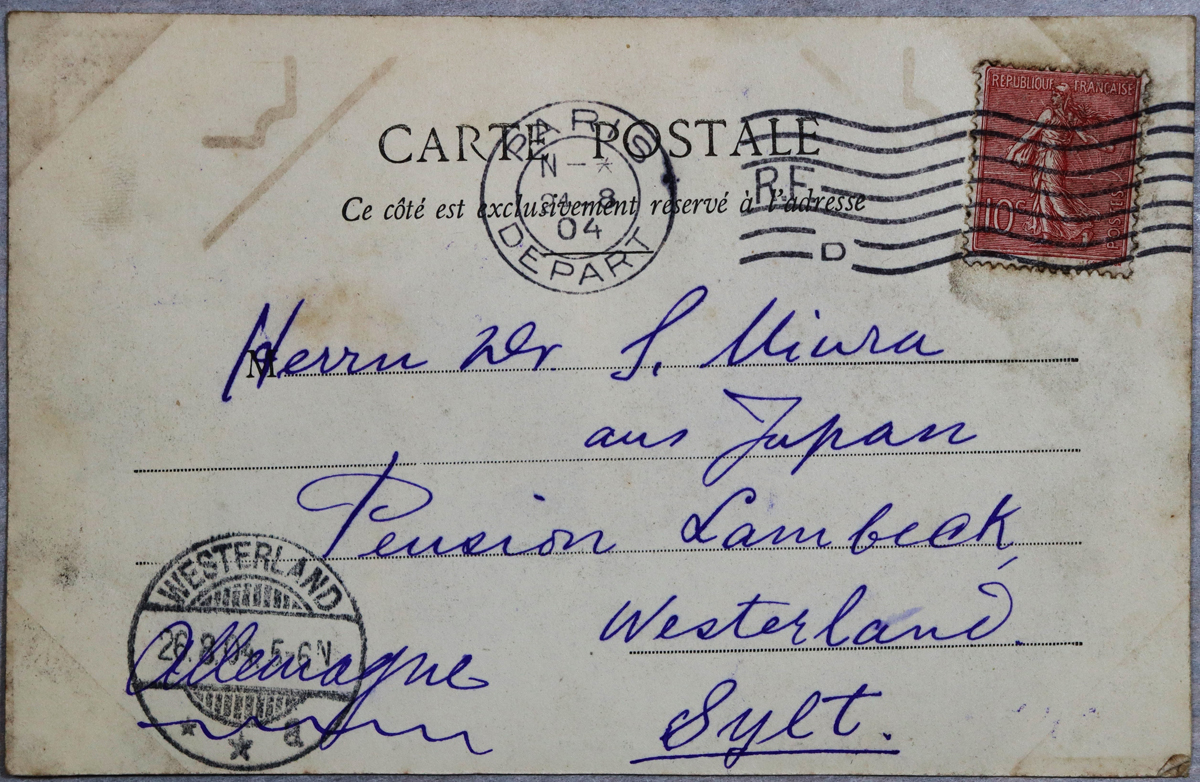 RÉPUBLIQUE FRANÇAISE
10c
POSTES
CARTE POSTALE
Ce côté est exclusivement réservé à l'adresse
PARIS
N - *
8
04
DEPART
R.F.
D
M
Herrn Dr. S. Miura
aus Japan
Pension Lambeck,
Westerland.
Sylt.
Allemagne
WESTERLAND
26.8.04. 5-6N
* * a